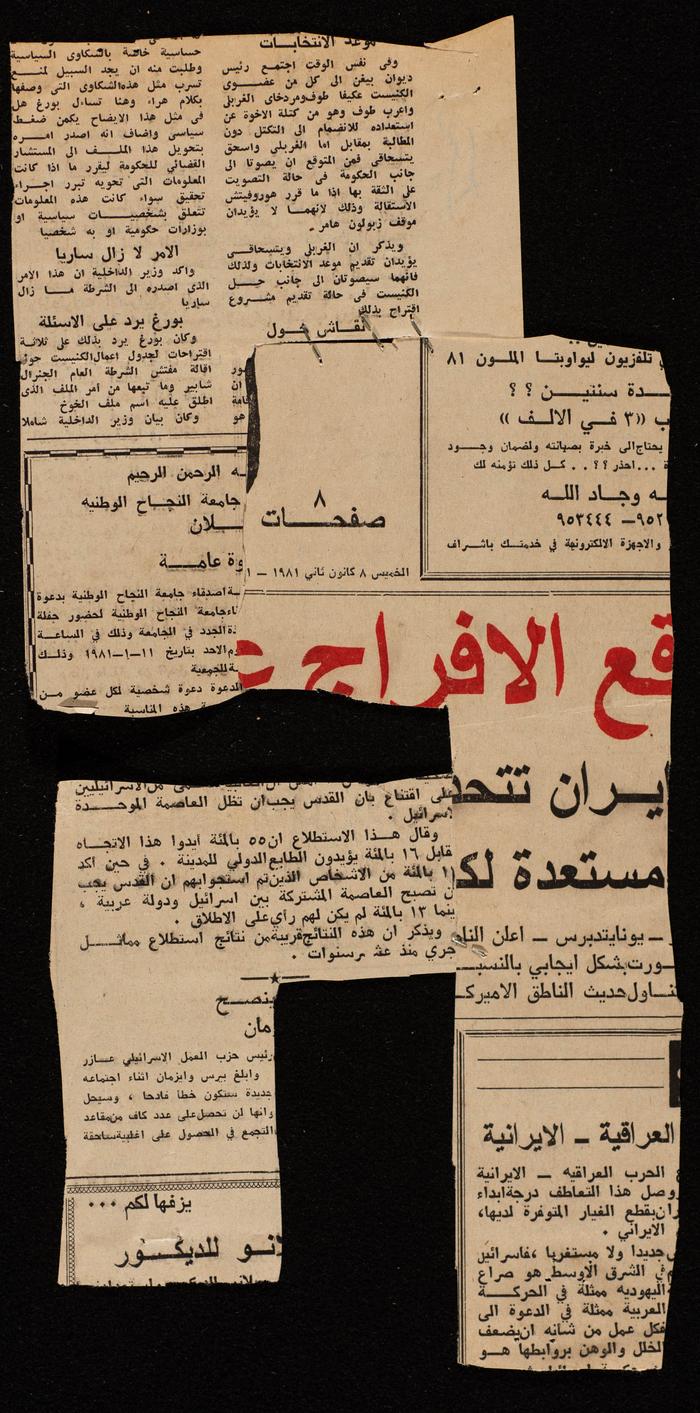 موعد الانتخابات
وفى نفس الوقت اجتمع رئيس
ديوان بيغن الى كل من عضوى
الكنيست عكيفا طوف ومردخاى الغربلى
واعرب طوف وهو من كتلة الاخوة عن
استعداده للانضمام الى التكتل دون
المطالبة بمقابل اما الغربلى واسحق
يتسحاقى فمن المتوقع ان يصوتا الى
جانب الحكومة فى حالة التصويت
على الثقة بها اذا ما قرر هوروفيتش
الاستقالة وذلك لانهما لا يؤيدان
موقف زبولون هامر .
ويذكر ان الغربلى ويتسحاقى
يؤيدان تقديم موعد الانتخابات ولذلك
فانهما سيصوتان الى جانب حل
الكنيست فى حالة تقديم مشروع
اقتراح بذلك
نقاش حول
حساسية خاصة بالشكاوى السياسية
وطلبت منه ان يجد السبيل لمنع
تسرب مثل هذه الشكاوى التى وصفها
بكلام هراء وهنا تساءل بورغ هل
فى مثل هذا الايضاح يكمن ضغط
سياسى واضاف انه اصدر امره
بتحويل هذا الملف الى المستشار
القضائى للحكومة ليقرر ما اذا كانت
المعلومات التى تحويه تبرر اجراء
تحقيق سواء كانت هذه المعلومات
تتعلق بشخصيات سياسية او
بوزارات حكومية او به شخصيا
الامر لا زال ساريا
واكد وزير الداخلية ان هذا الامر
الذى اصدره الى الشرطة ما زال
ساريا
بورغ يرد على الاسئلة
وكان بورغ يرد بذلك على ثلاثة
اقتراحات لجدول اعمال الكنيست حول
اقالة مفتش الشرطة العام الجنرال
شابير وما تبعها من أمر الملف الذى
اطلق عليه اسم ملف الخوخ
وكان بيان وزير الداخلية شاملا
ور
ان
هو
تلفزيون ليواوبتا الملون ٨١
ـدة سنتين ؟ ؟
ب ((٣ في الالف ))
يحتاج الى خبرة بصيانته ولضمان وجود
... احذر ؟ ؟ . . كل ذلك نؤمنه لك
ـه وجاد الله
٩٥٢ـ ٩٥٣٤٤٤
والاجهزة الالكترونية في خدمتك باشراف
٨
صفحات
الخميس ٨ كانون ثاني ١٩٨١ – ١
ـه الرحمن الرحيم
جامعة النجاح الوطنيه
ـلان
وة عامة
ـة اصدقاء جامعة النجاح الوطنية بدعوة
ـاء جامعة النجاح الوطنية لحضور حفلة
ـة الجدد في الجامعة وذلك في الساعة
وم الاحد بتاريخ ١١–١–١٩٨١ وذلك
ـة للجمعية
الدعوة دعوة شخصية لكل عضو من
ـة هذه المناسبة
قع الافراج ع
ايران تتحد
مستعدة لك
ـ يونايتدبرس ـ اعلن النا
ـورت بشكل ايجابي بالنسبـ
تناول حديث الناطق الاميركـ
على اقتناع بان القدس يجب ان تظل العاصمة الموحدة
اسرائيل .
وقال هذا الاستطلاع ان ٥٥ بالمئة أيدوا هذا الاتجاه
قابل ١٦ بالمئة يؤيدون الطابع الدولي للمدينة . في حين أكد
١١ بالمئة من الاشخاص الذين تم استجوابهم ان القدس يجب
ن تصبح العاصمة المشتركة بين اسرائيل ودولة عربية ،
ينما ١٣ بالمئة لم يكن لهم رأي على الاطلاق .
ويذكر ان هذه النتائج قريبة من نتائج استطلاع مماثل
جري منذ عشر سنوات .
ينصح
زمان
رئيس حزب العمل الاسرائيلي عازر
وابلغ بيرس وايزمان اثناء اجتماعه
جديدة ستكون خطأ فادحا ، وسيحل
وانها لن تحصل على عدد كاف من مقاعد
التجمع في الحصول على اغلبية ساحقة
يزفها لكم ...
ـانو للديكور
العراقية ـ الايرانية
ع الحرب العراقيه ـ الايرانية
وصل هذا التعاطف درجة ابداء
ران بقطع الغيار المتوفرة لديها،
الايراني .
جديدا ولا مستغربا ،فاسرائيل
في الشرق الاوسط هو صراع
اليهودية ممثلة في الحركة
العربية ممثلة في الدعوة الى
فكل عمل من شانه ان يضعف
الخلل والوهن بروابطها هو